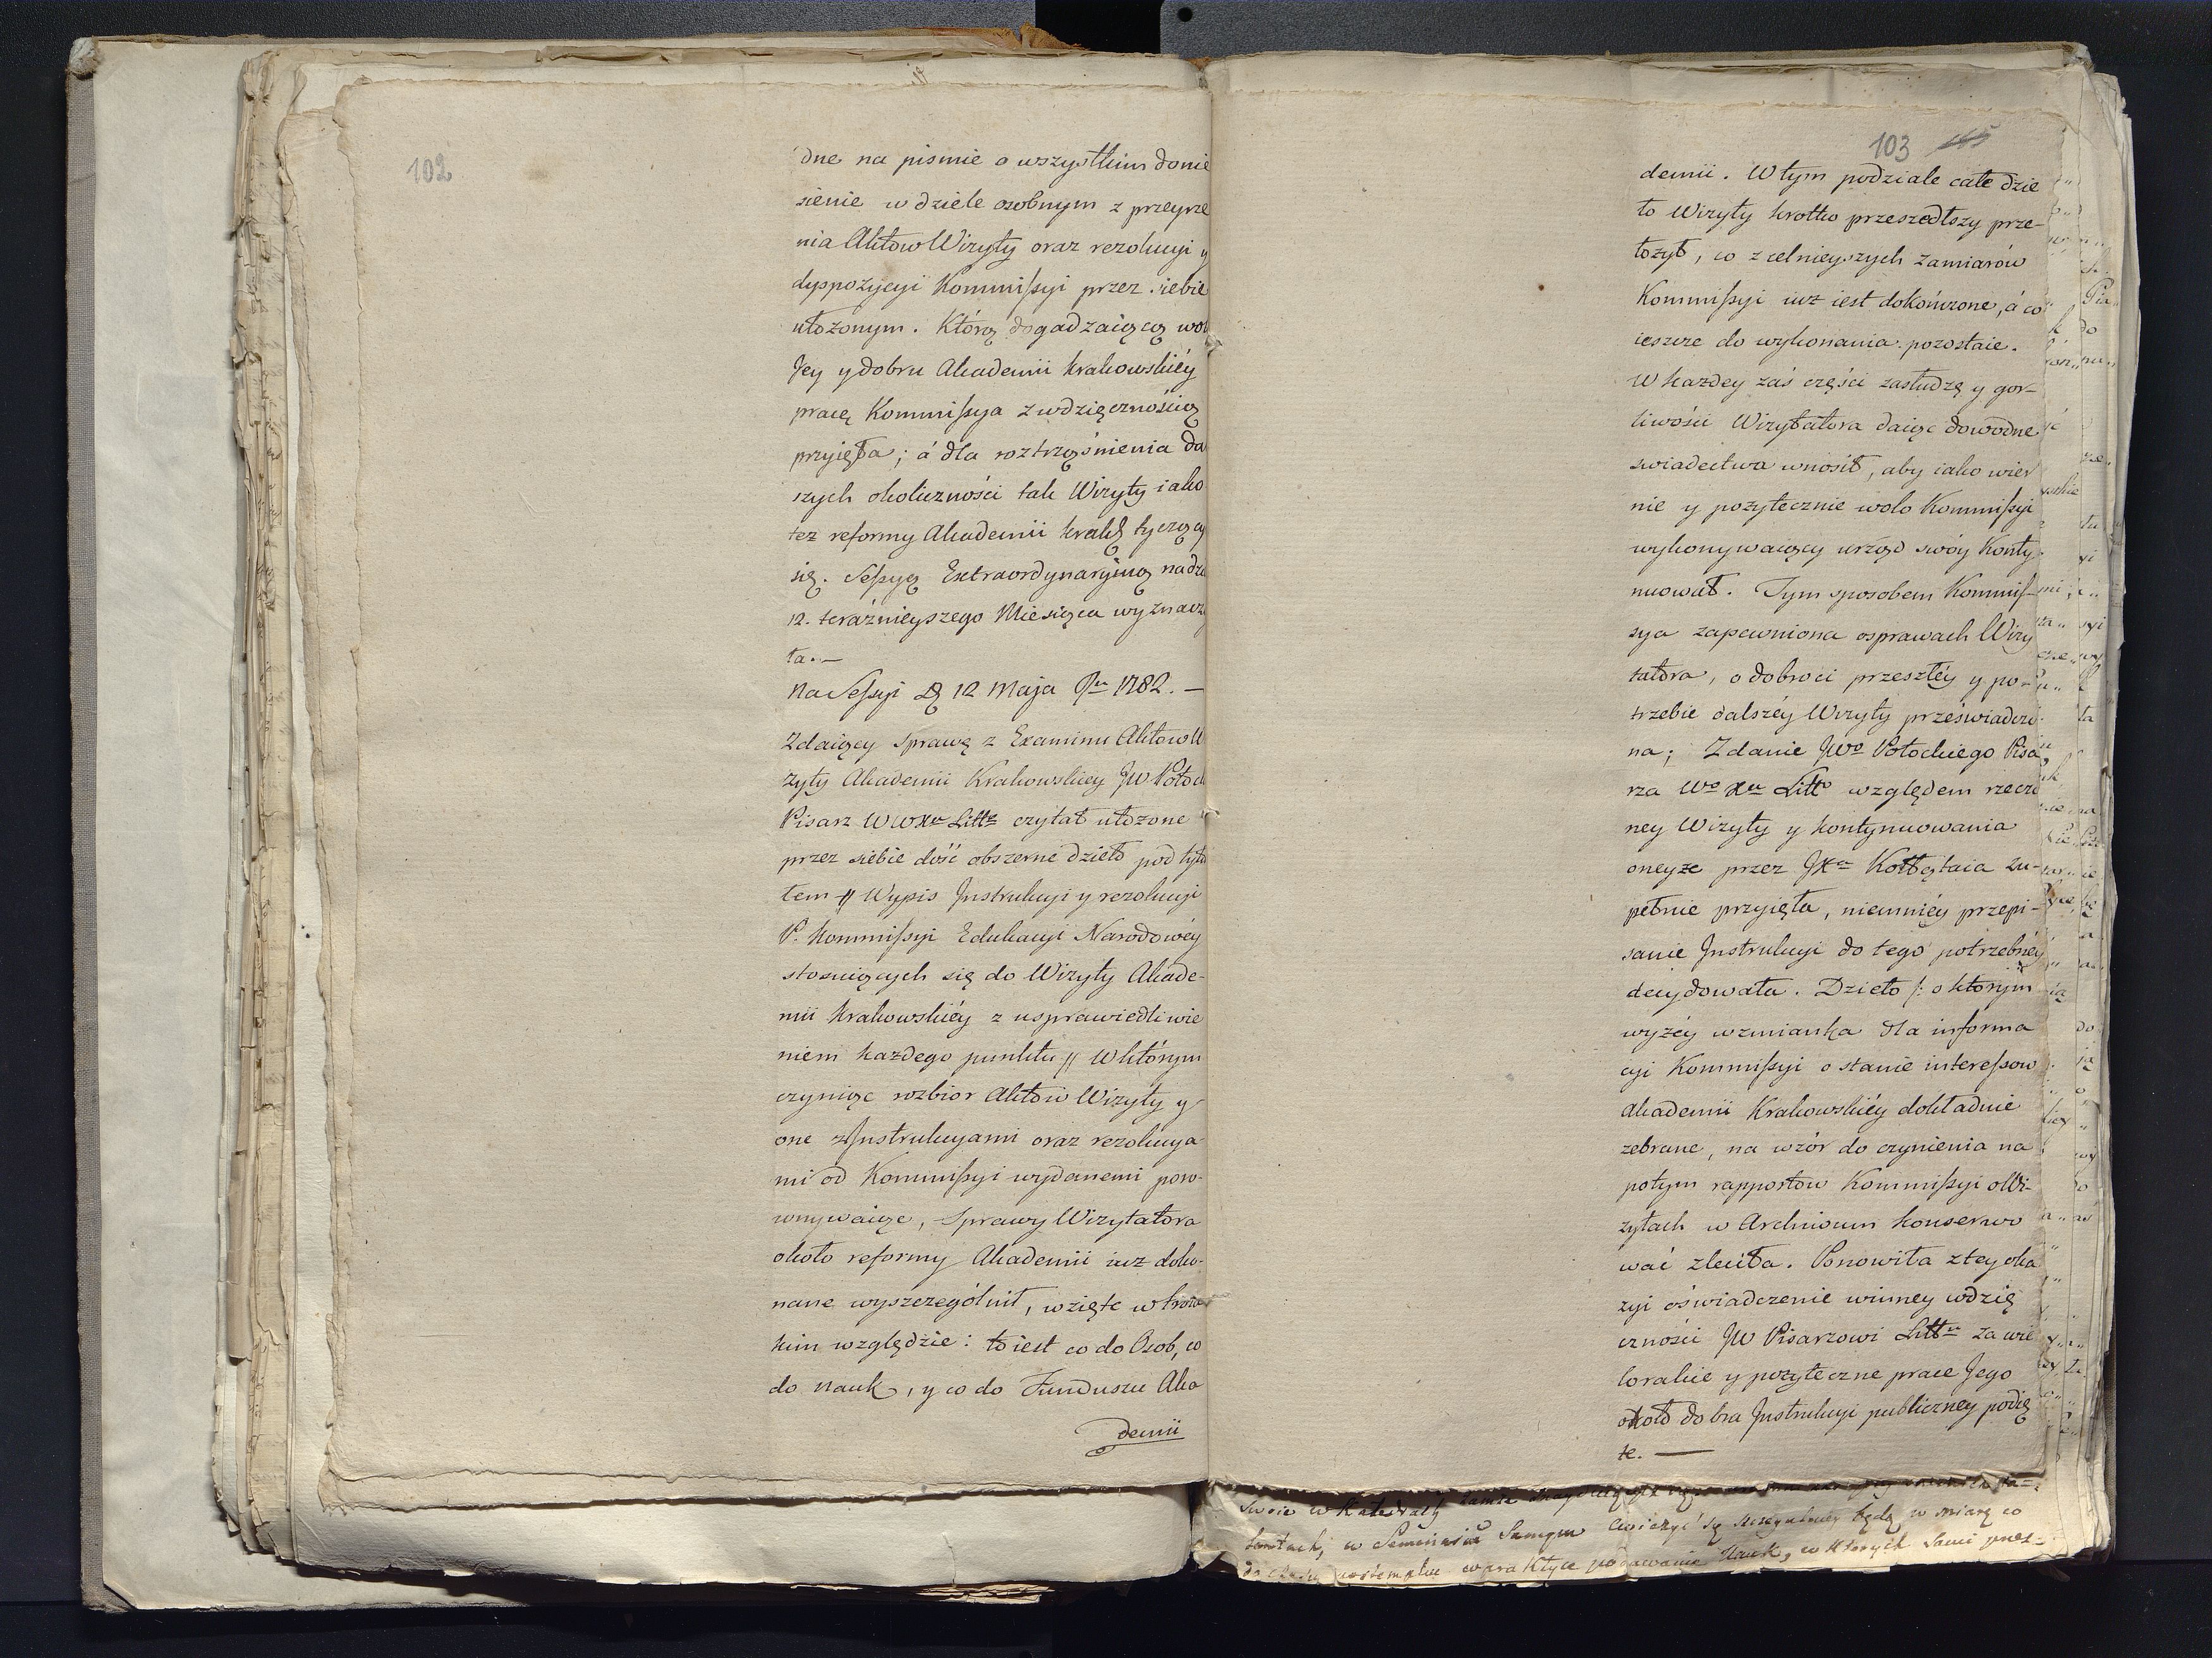 102
dne na pismie o wszystkim donie
sienie w dziele osobnym z przeyrze
nia Aktow Wizyty oraz rezolucyi y
dyspozycyi Kommissyi przez siebie
ułożonym. Którą dogadzaiącą wol
Jey y dobru Akademii krakowskiéy
pracę Kommissya z wdzięcznością
przyięła; á dla roztrząśnienia da
szych okoliczności tak Wizyty iako
tez reformy Akademii krakḽ tyczący
się. Sessyą Extraordynaryiną na dzi
12. teraźnieyszego Miesiąca wyznaczy
ła.—
Na Sessyi D 12 Maja Ru 1782. —
Zdaiący sprawę z Examinu Aktow W
zyty Akademii Krakowskiey JW Potoc
Pisarz WWXu Littz czytał ułożone
przez siebie dość obszerne dzieło pod tytu
tem // Wypis Instrukcyi y rezolucyi
P. Kommissyi Edukacyi Narodowéy
stosuiących się do Wizyty Akade-
mii Krakowskiéy z usprawiedliwie
niem każdego punktu // W którym
czyniąc rozbior Aktow Wizyty y
one z Instrukcyami oraz rezolucya
mi od Kommissyi wydanemi poro-
wnywaiąc, sprawy Wizytatora
około reformy Akademii iuz doko-
nane wyszczególnił, wzięte w troia
kim względzie: to iest co do Osob, co
do nauk, y co do Funduszu Aka
demii
103
demii. W tym podziale całe dzie
ło Wizyty krotko przeszedłszy prze-
łożył, co z celnieyszych zamiarów
Kommissyi iuz iest dokończone, á co
ieszcze do wykonania pozostaie.
W kazdey zaś części zasłudzę y gor-
liwości Wizytatora daiąc dowodne
swiadectwa wnosił, aby iako wier
nie y pozytecznie wolo Kommissyi
wykonywaiący urząd swóy konty
nuował. Tym sposobem Kommis-
sya zapewniona o sprawach Wizy
tatora, o dobroci przeszłéy y po-
trzebie dalszéy Wizyty przeświadczo
na; Zdanie JWo Potockiego Pisa
rza Wo Xu Litto względem rzeczo
ney Wizyty y kontynuowania
oneyże przez JXa Kołłątaia zu-
pełnie przyięła, niemniéy przepi-
sanie Instrukcyi do tego potrzebnéy
decydowała. Dzieło /: o którym
wyżéy wzmianka dla informa
cyi Kommissyi o stanie interessow
Akademii Krakowskiéy dokładnie
zebrane, na wzór do czynienia na
potym rapportow Kommissyi o Wi-
zytach w Archiwum konserwo
wać zleciła. Ponowiła z tey oka
zyi oświadczenie winney wdzię
czności JW Pisarzowi Litto za wie
lorakie y pozyteczne prace Jego
około dobra Instrukcyi publiczney podię
te. —